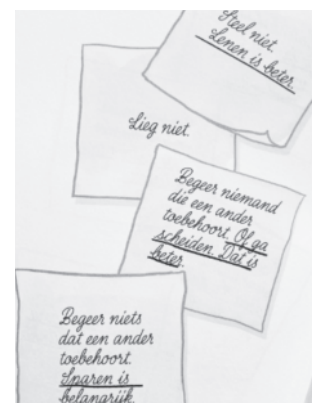 Steel niet.
Lenen is beter.
Lieg niet.
Begeer niemand
die een ander
toebehoort. Of ga
scheiden. Dat is
beter.
Begeer niets
dat een ander
toebehoort.
Sparen is
belangrijk.